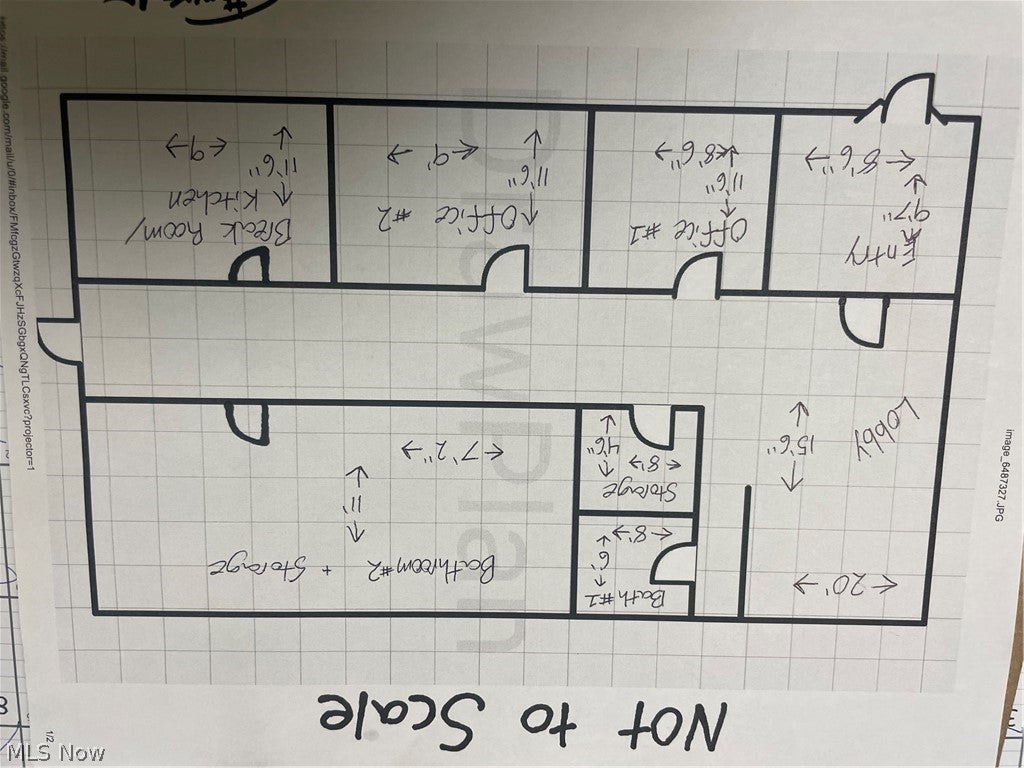 Not to Scale
←20'→
Bath #1
6'
←8'→
Bathroom #2 + Storage
11'
←7'2"→
Storage
←8'→
4'6"
Lobby
15'6"
Entry
9'7"
←8'6"→
Office #1
11'6"
←8'6"→
Office #2
11'6"
←9'→
Break Room/
Kitchen
11'6"
←9→
Drawplan
image_6487327.JPG
1/2
MLS Now